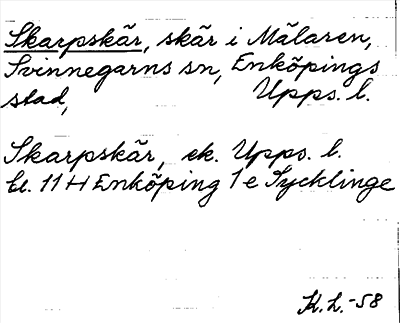 Skarpskär, skär i Mälaren,
Svinnegarns sn, Enköpings
stad, Upps. l.
Skarpskär, ek. Upps. l.
bl. 11 H Enköping 1 e Sycklinge
K. L. -58